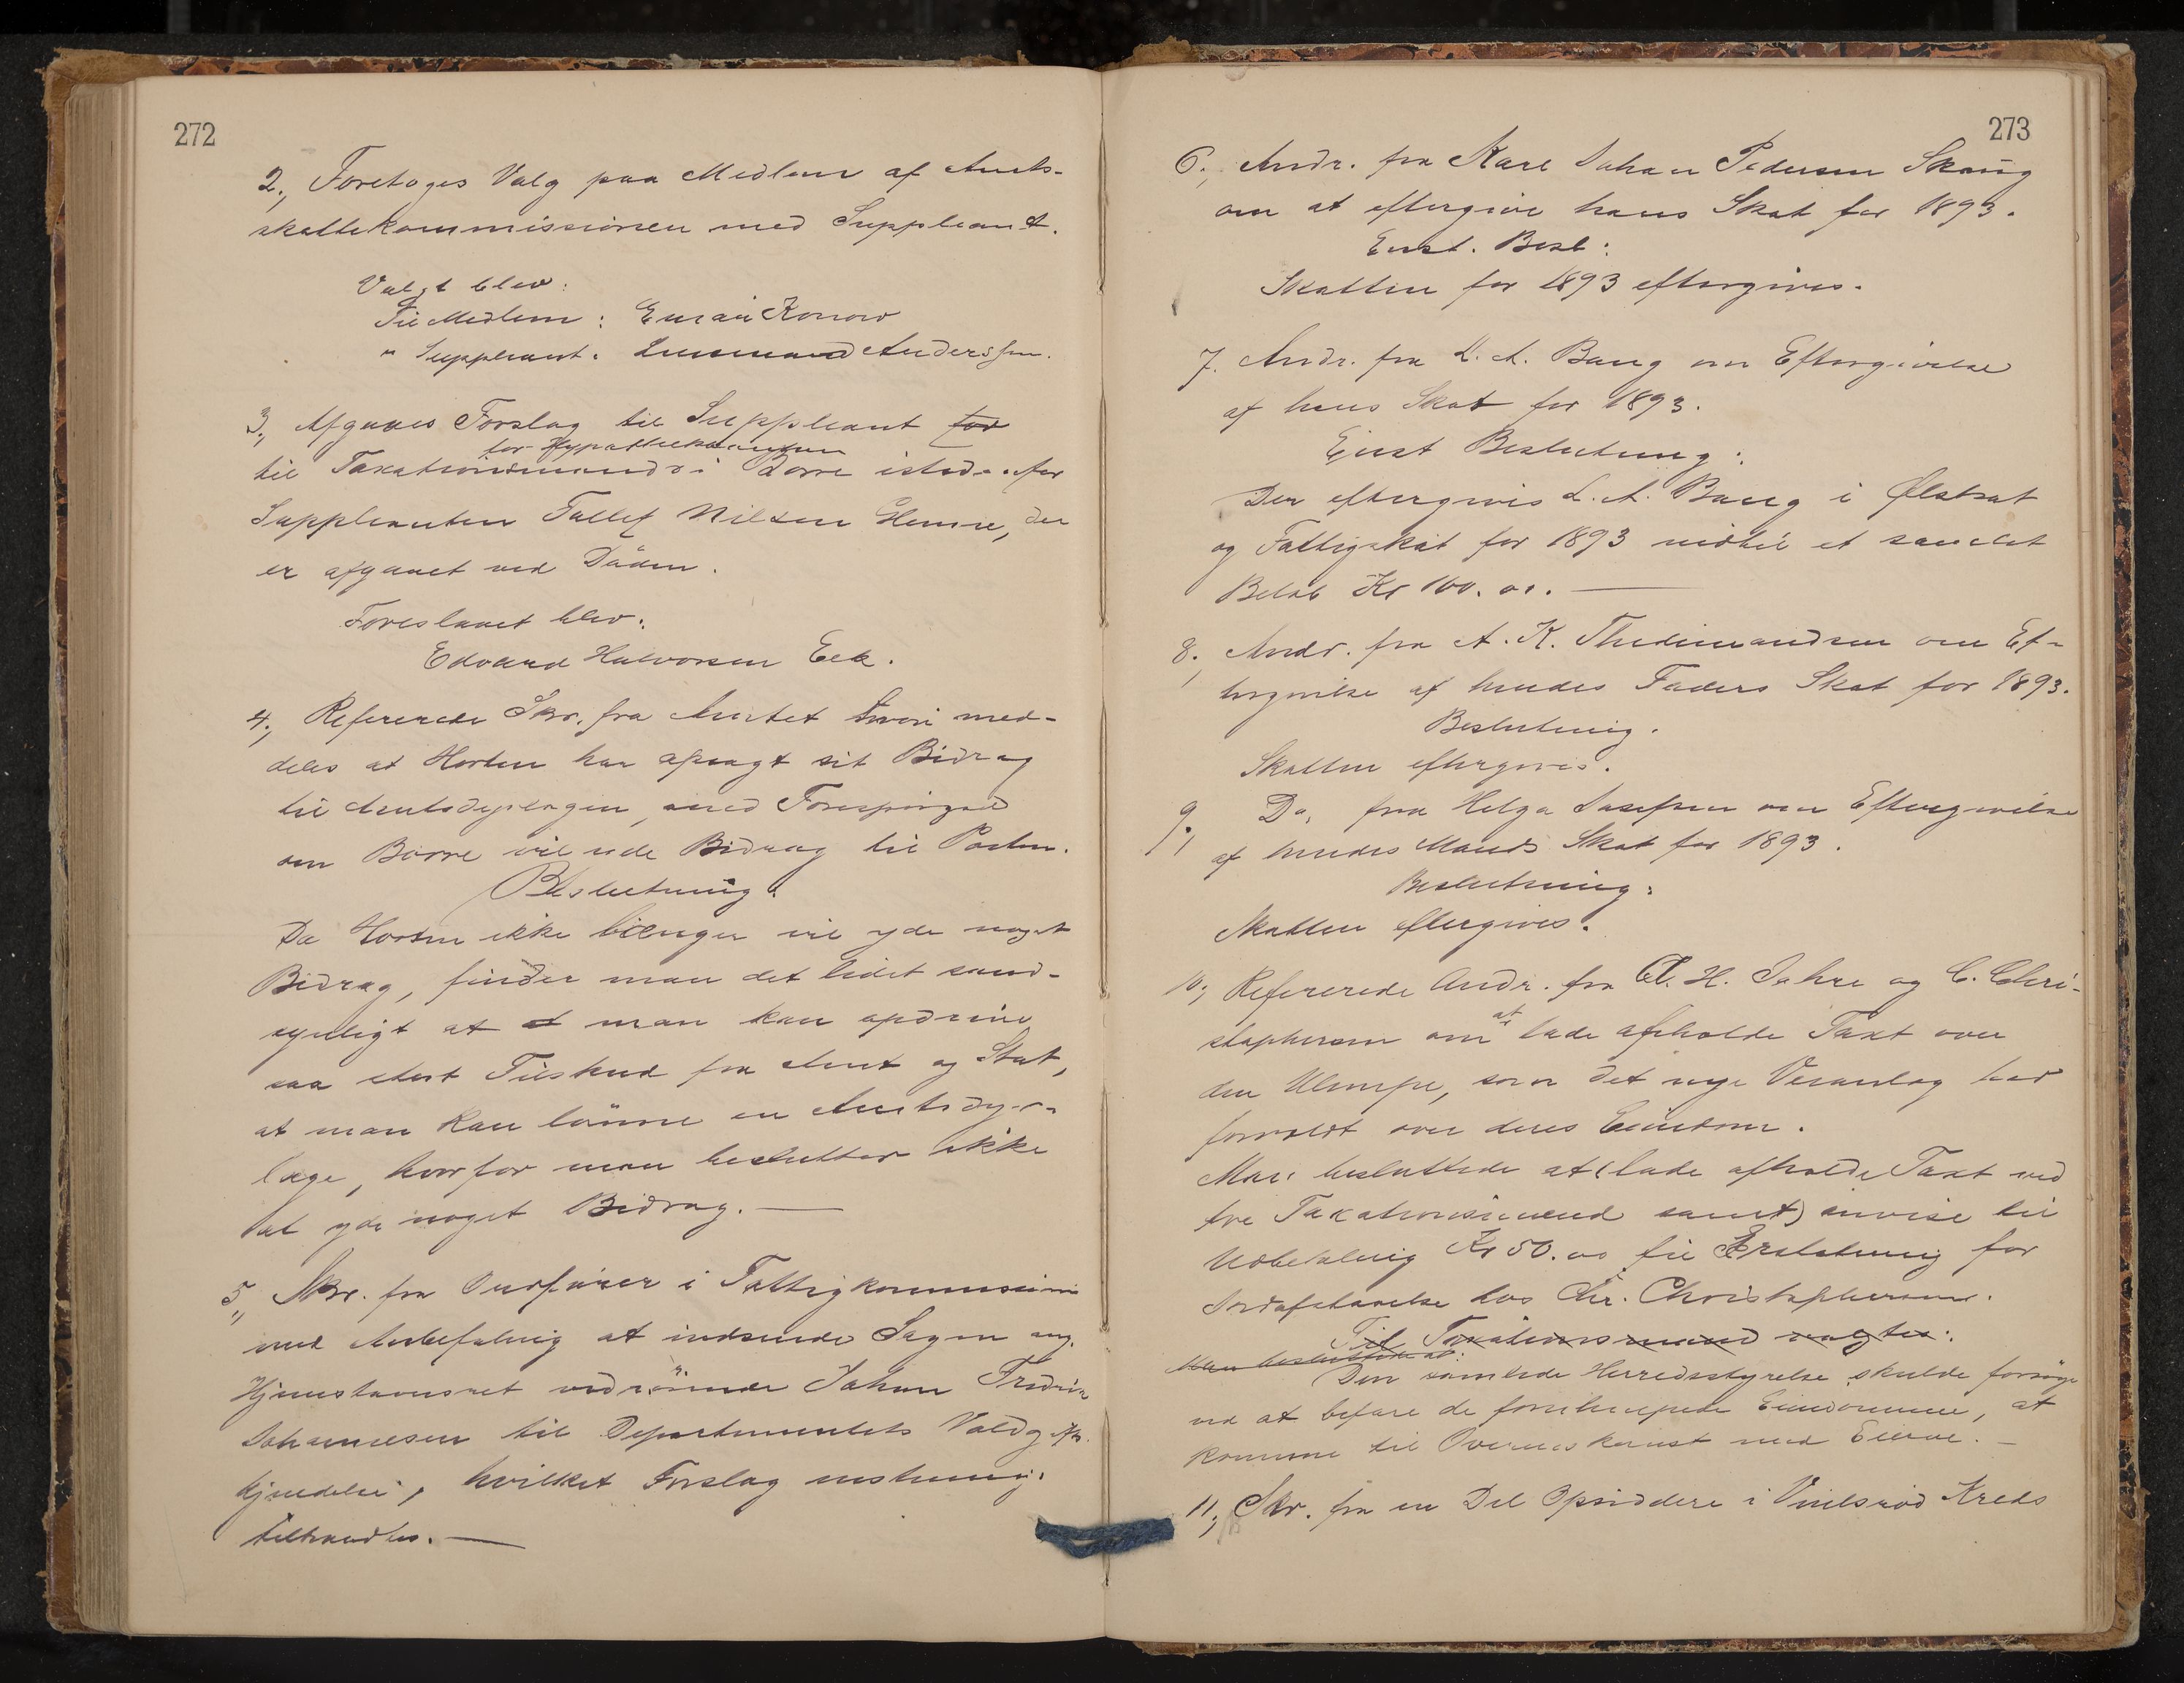 272
2., Foretoges Valg paa Medlem af Amts-
skattekommissionen med Suppleant.
Valgt blev:
Til Medlem: Konow
" Suppleant: Anderssen.
3., Afgaves Forslag til Suppleant for
for Hypothekbanken
til Taxationsmænd i Borre istedenfor
Suppleanten Tallef Nilsen, der
er afgaaet ved Døden.
Foreslaaet blev:
Edvard Halvorsen Eek.
4., Refererede Skr. fra Amtet hvori med-
deles at Horten har opsagt sit Bidrag
til Amtsdyrlægen, med Forespørgsel
om Borre vil yde Bidrag til Posten.
Beslutning:
Da Horten ikke længer vil yde noget
Bidrag, finder man det lidet sand-
synligt at at man kan opdrive
saa stort Tilskud fra Amt og Stat,
at man kan lønne en Amtsdyr-
læge, hvorfor man beslutter ikke
at yde noget Bidrag.
5., Skr. fra Ordfører i Fattigkommissionen
med Anbefaling at indsende Sagen ang.
Hjemstavnsret vedrørende Johan Fredrik
Johannesen til Departementets Voldgifts-
kjendelse, hvilket Forslag enstemmig
tiltraadtes.
273
6., Andr. fra Karl Johan Pedersen Skaug
om at eftergive hans Skat for 1893.
Enst. Besl:
Skatten for 1893 eftergives.
7. Andr. fra L. A. Baug om Eftergivelse
af hans Skat for 1893.
Enst Beslutning:
Der eftergives L. A. Baug i
og Fattigskat for 1893 indtil et samlet
Beløb Kr 100.00.
8., Andr. fra A. K. Thedemandsen om Ef-
tergivelse af hendes Faders Skat for 1893.
Beslutning.
Skatten eftergives.
9., Do. fra Helga Josefsen om Eftergivelse
af hendes Mands Skat for 1893.
Beslutning:
Skatten eftergives.
10., Refererede Andr. fra A. H. Jahre og C. Chri-
stophersen om at lade afholde Taxt over
den Ulempe, som det nye Veianlæg har
forvoldt over deres Eiendom.
Man besluttede at (lade afholde Taxt ved
tre Taxationsmænd samt) anvise til
Udbetaling Kr 50.00 til Erstatning for
Jordafstaaelse hos Chr. Christophersen.
Til Taxationsmænd valgtes:
Man besluttede at:
Den samlede Herredsstyrelse skulde forsøge
ved at befare de Eiendomme, at
komme til Overenskomst med Eierne.
11., Skr. fra en Del Opsiddere i Kreds